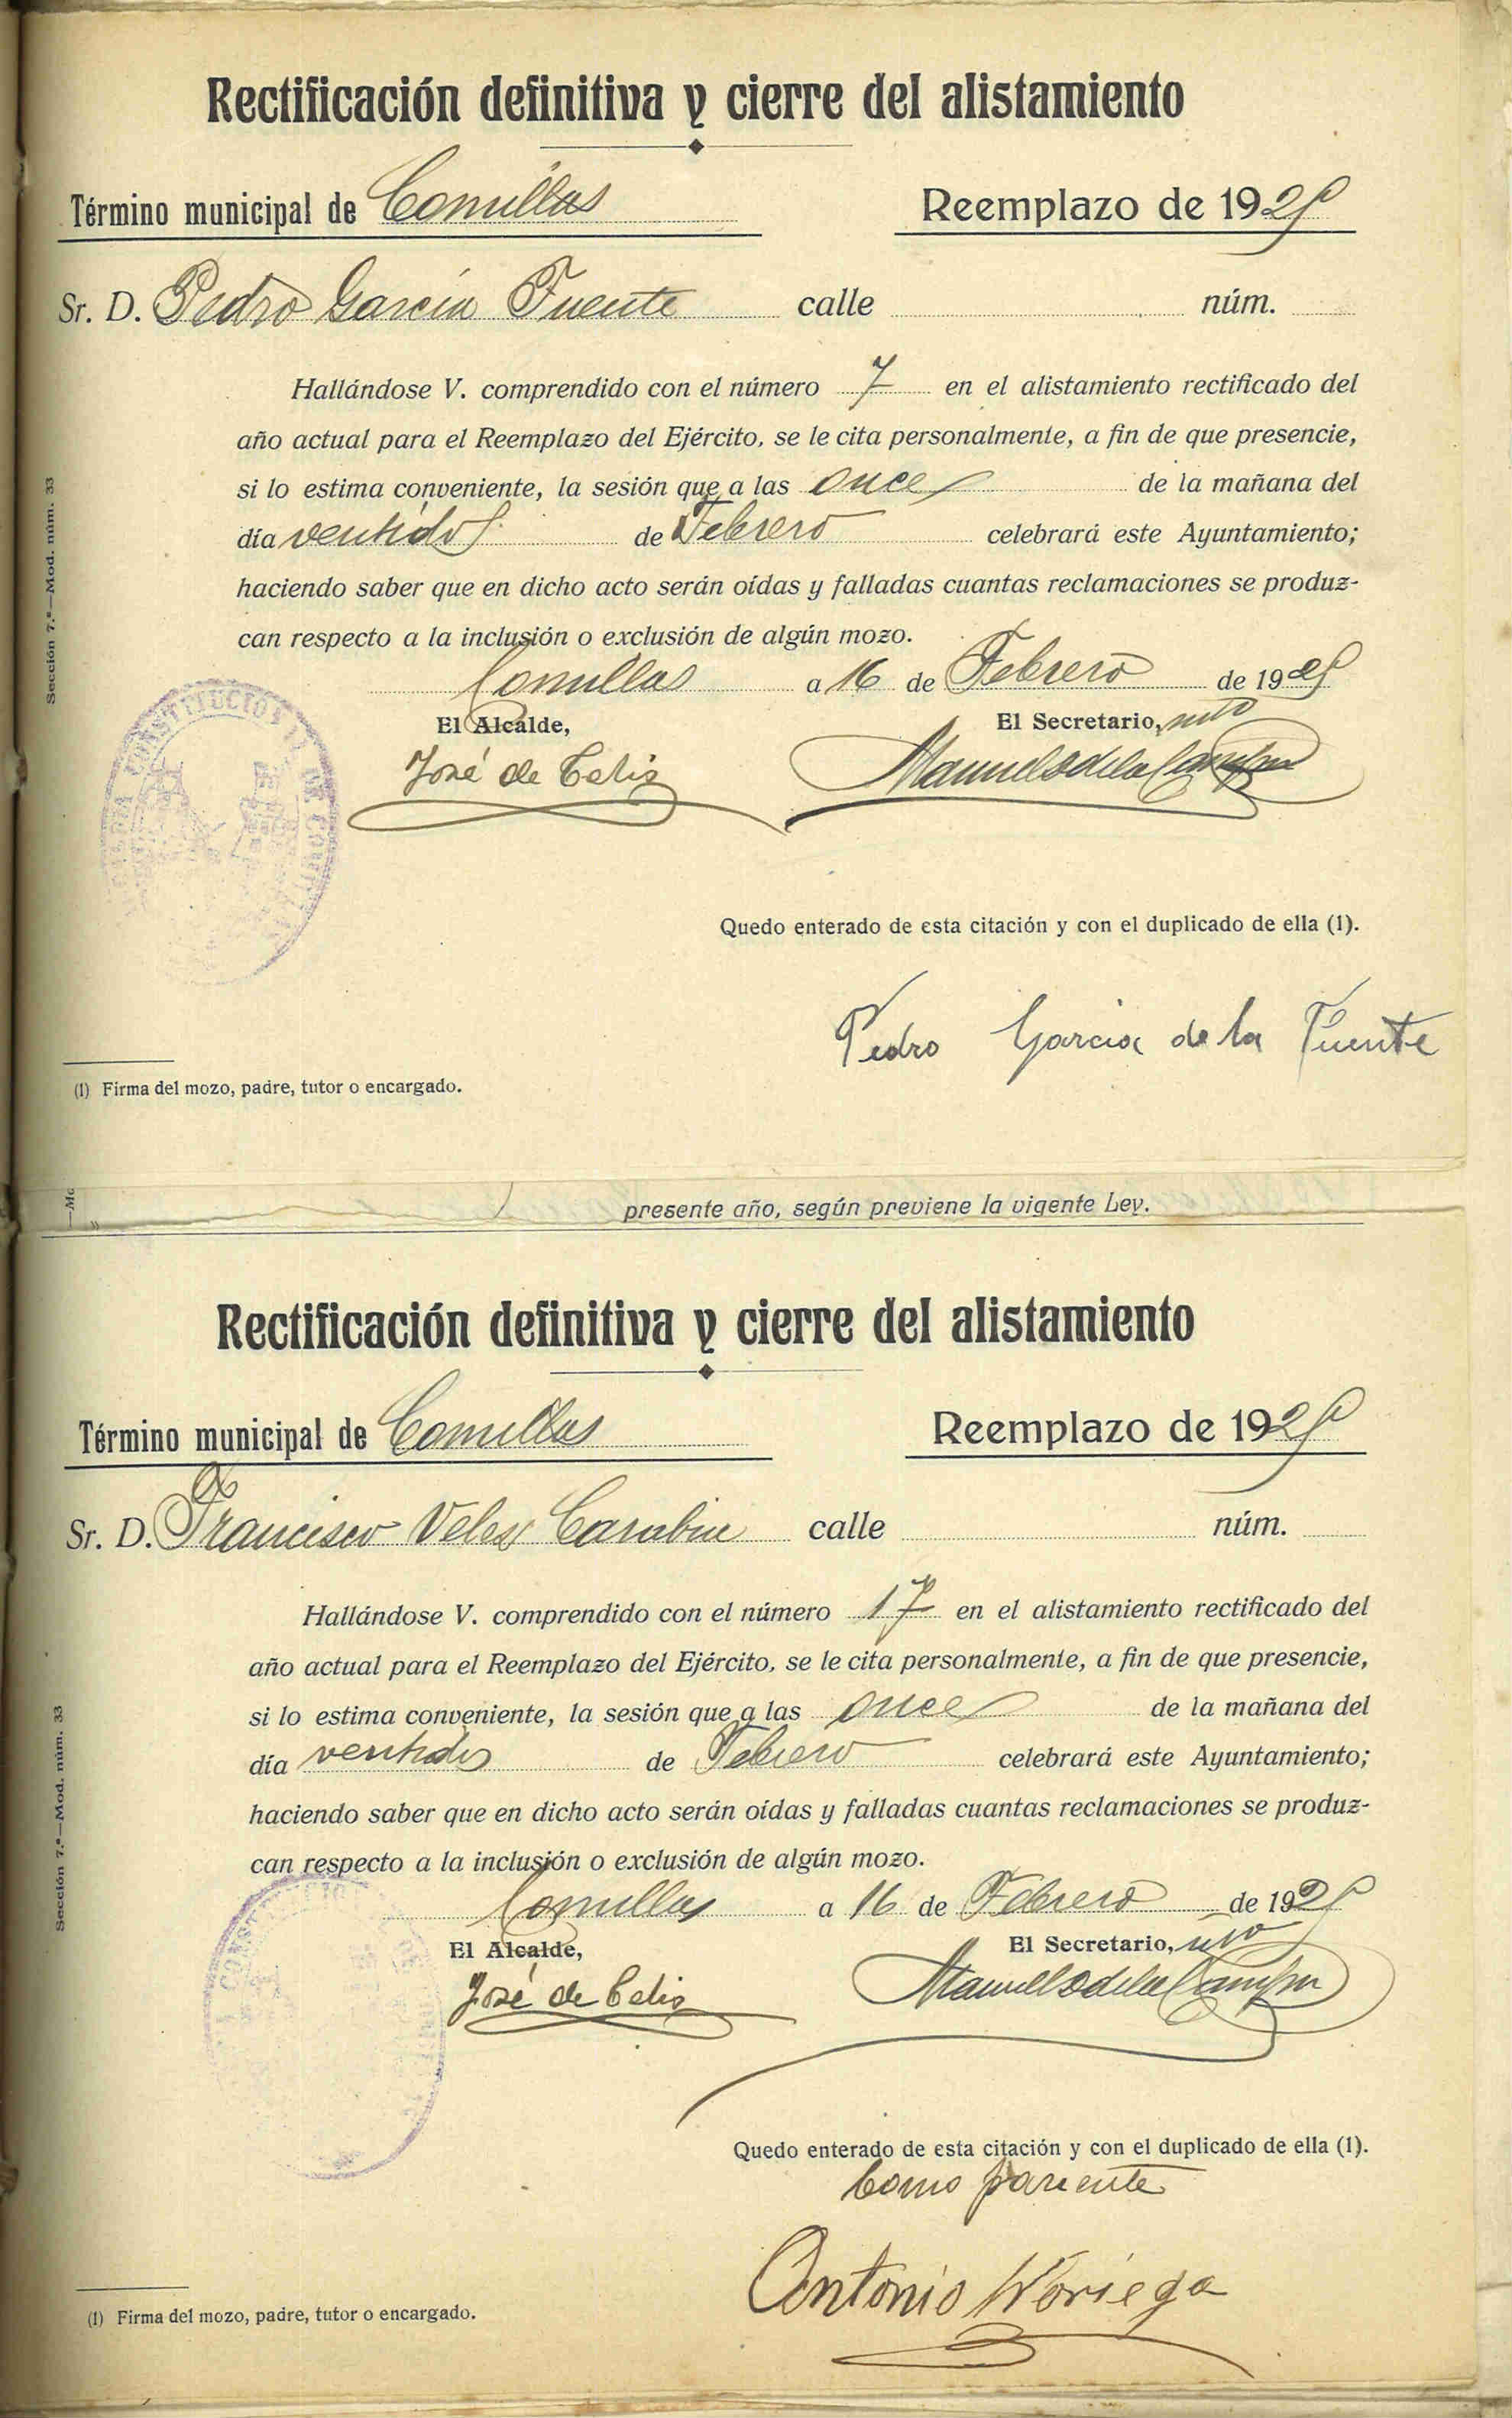 Rectificación definitiva y cierre del alistamiento
Término municipal de Comillas Reemplazo de 1925
Sr. D. Pedro García Fuente calle núm.
Hallándose V. comprendido con el número 7 en el alistamiento rectificado del
año actual para el Reemplazo del Ejército, se le cita personalmente, a fin de que presencie,
si lo estima conveniente, la sesión que a las once de la mañana del
día ventidos de Febrero celebrará este Ayuntamiento;
haciendo saber que en dicho acto serán oídas y falladas cuantas reclamaciones se produz-
can respecto a la inclusión o exclusión de algún mozo.
Comillas a 16 de Febrero de 1925
El Alcalde, El Secretario,
José de Celis Manuel
Quedo enterado de esta citación y con el duplicado de ella (1).
Pedro Garcia de la Fuente
(1) Firma del mozo, padre, tutor o encargado.
Sección 7.ª—Mod. núm. 33
presente año, según previene la vigente Ley.
Rectificación definitiva y cierre del alistamiento
Término municipal de Comillas Reemplazo de 1925
Sr. D. Francisco Velez calle núm.
Hallándose V. comprendido con el número 17 en el alistamiento rectificado del
año actual para el Reemplazo del Ejército, se le cita personalmente, a fin de que presencie,
si lo estima conveniente, la sesión que a las once de la mañana del
día ventidos de Febrero celebrará este Ayuntamiento;
haciendo saber que en dicho acto serán oídas y falladas cuantas reclamaciones se produz-
can respecto a la inclusión o exclusión de algún mozo.
Comillas a 16 de Febrero de 1925
El Alcalde, El Secretario,
José de Celis Manuel
Quedo enterado de esta citación y con el duplicado de ella (1).
Como pariente
Antonio Noriega
(1) Firma del mozo, padre, tutor o encargado.
Sección 7.ª—Mod. núm. 33